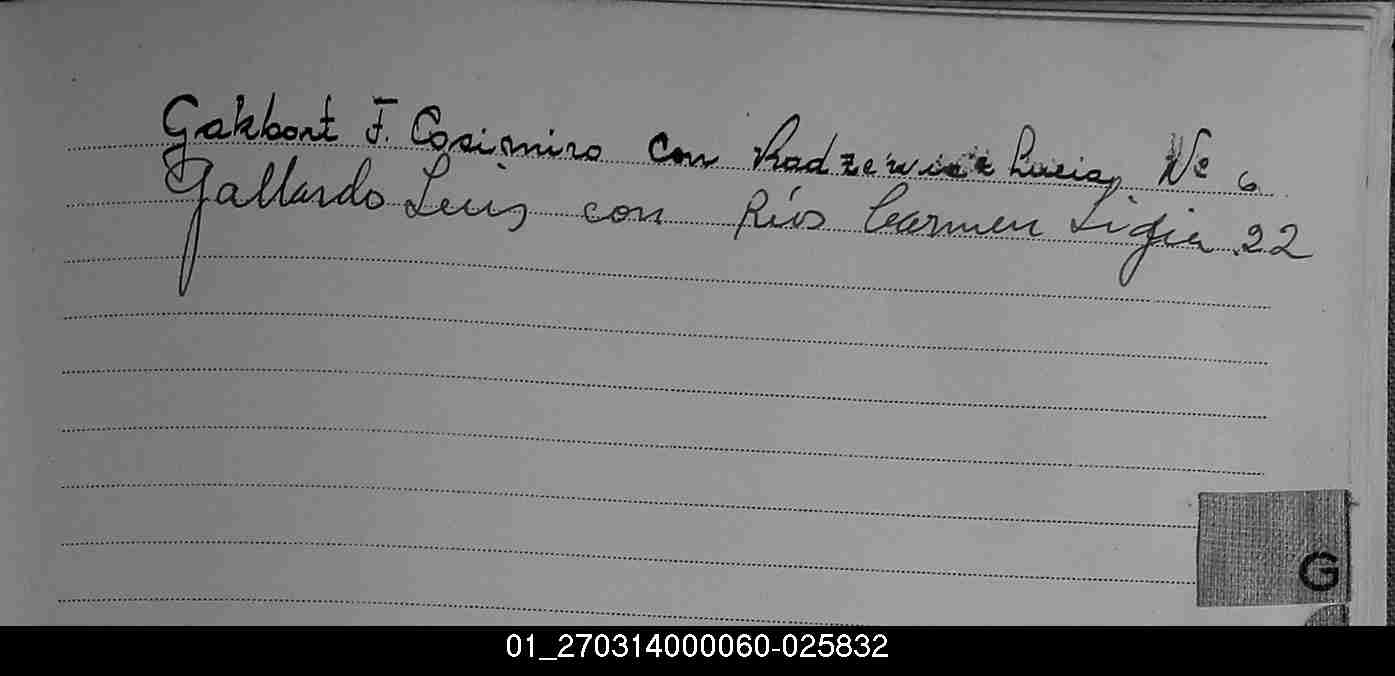 Gakbont F. Cosimiro con Radzewicz Lucia, Nº 6
Gallardo Luis con Ríos Carmen Ligia 22
G
01_270314000060-025832